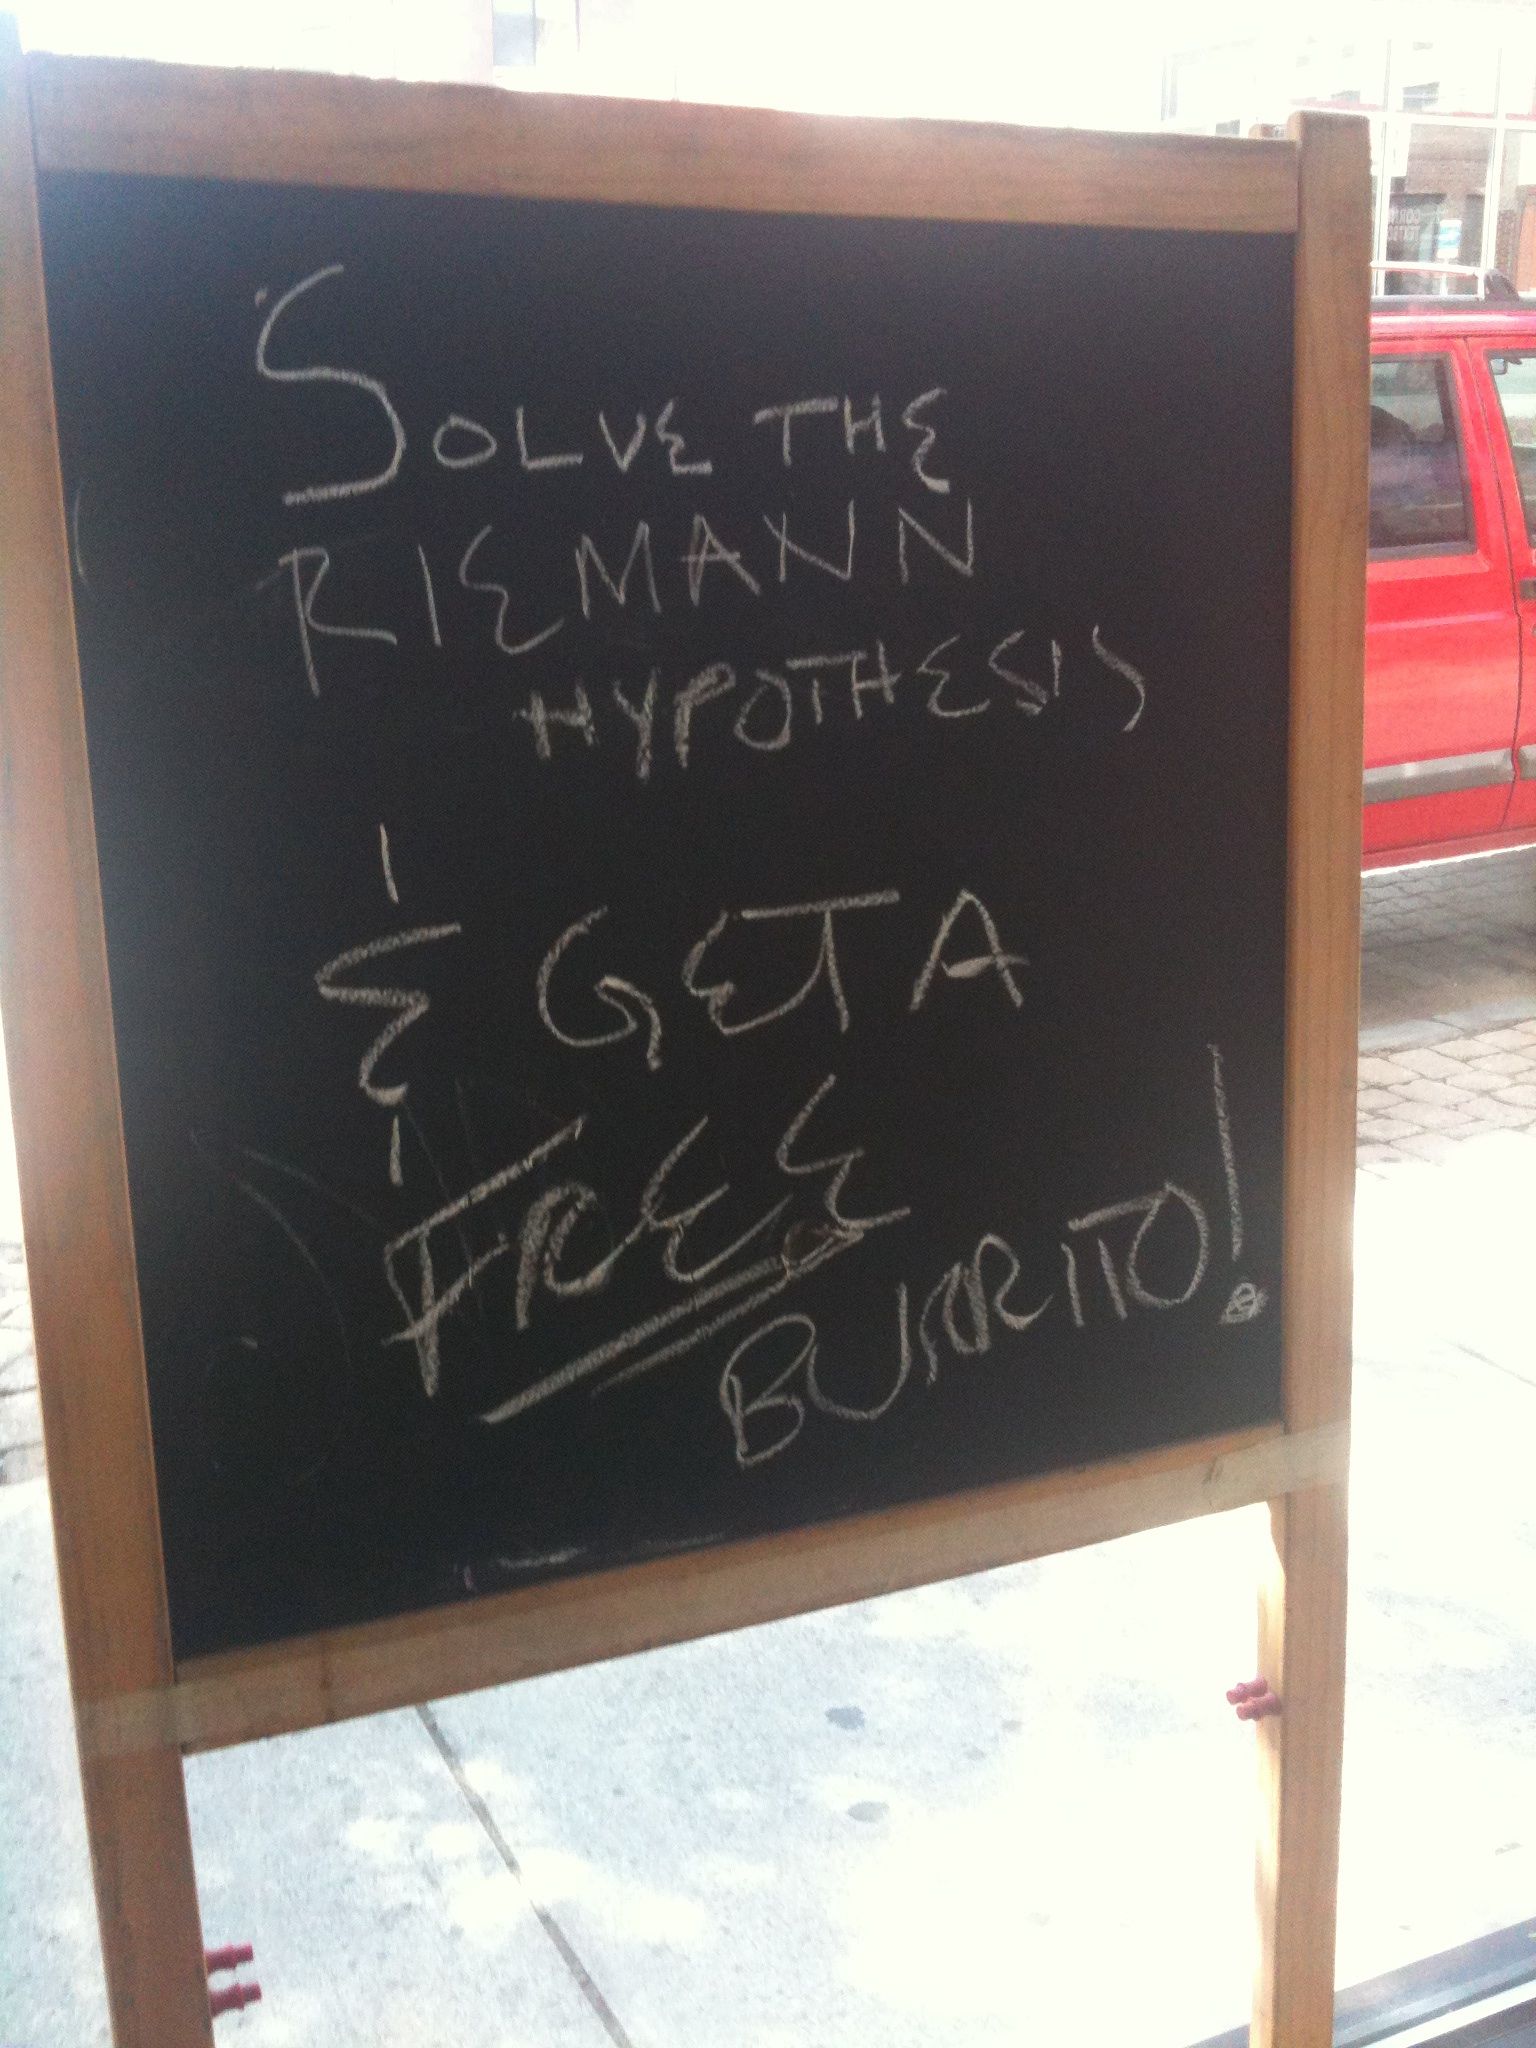 SOLVE THE
RIEMANN
HYPOTHESIS
& GET A
FREE
BURRITO!